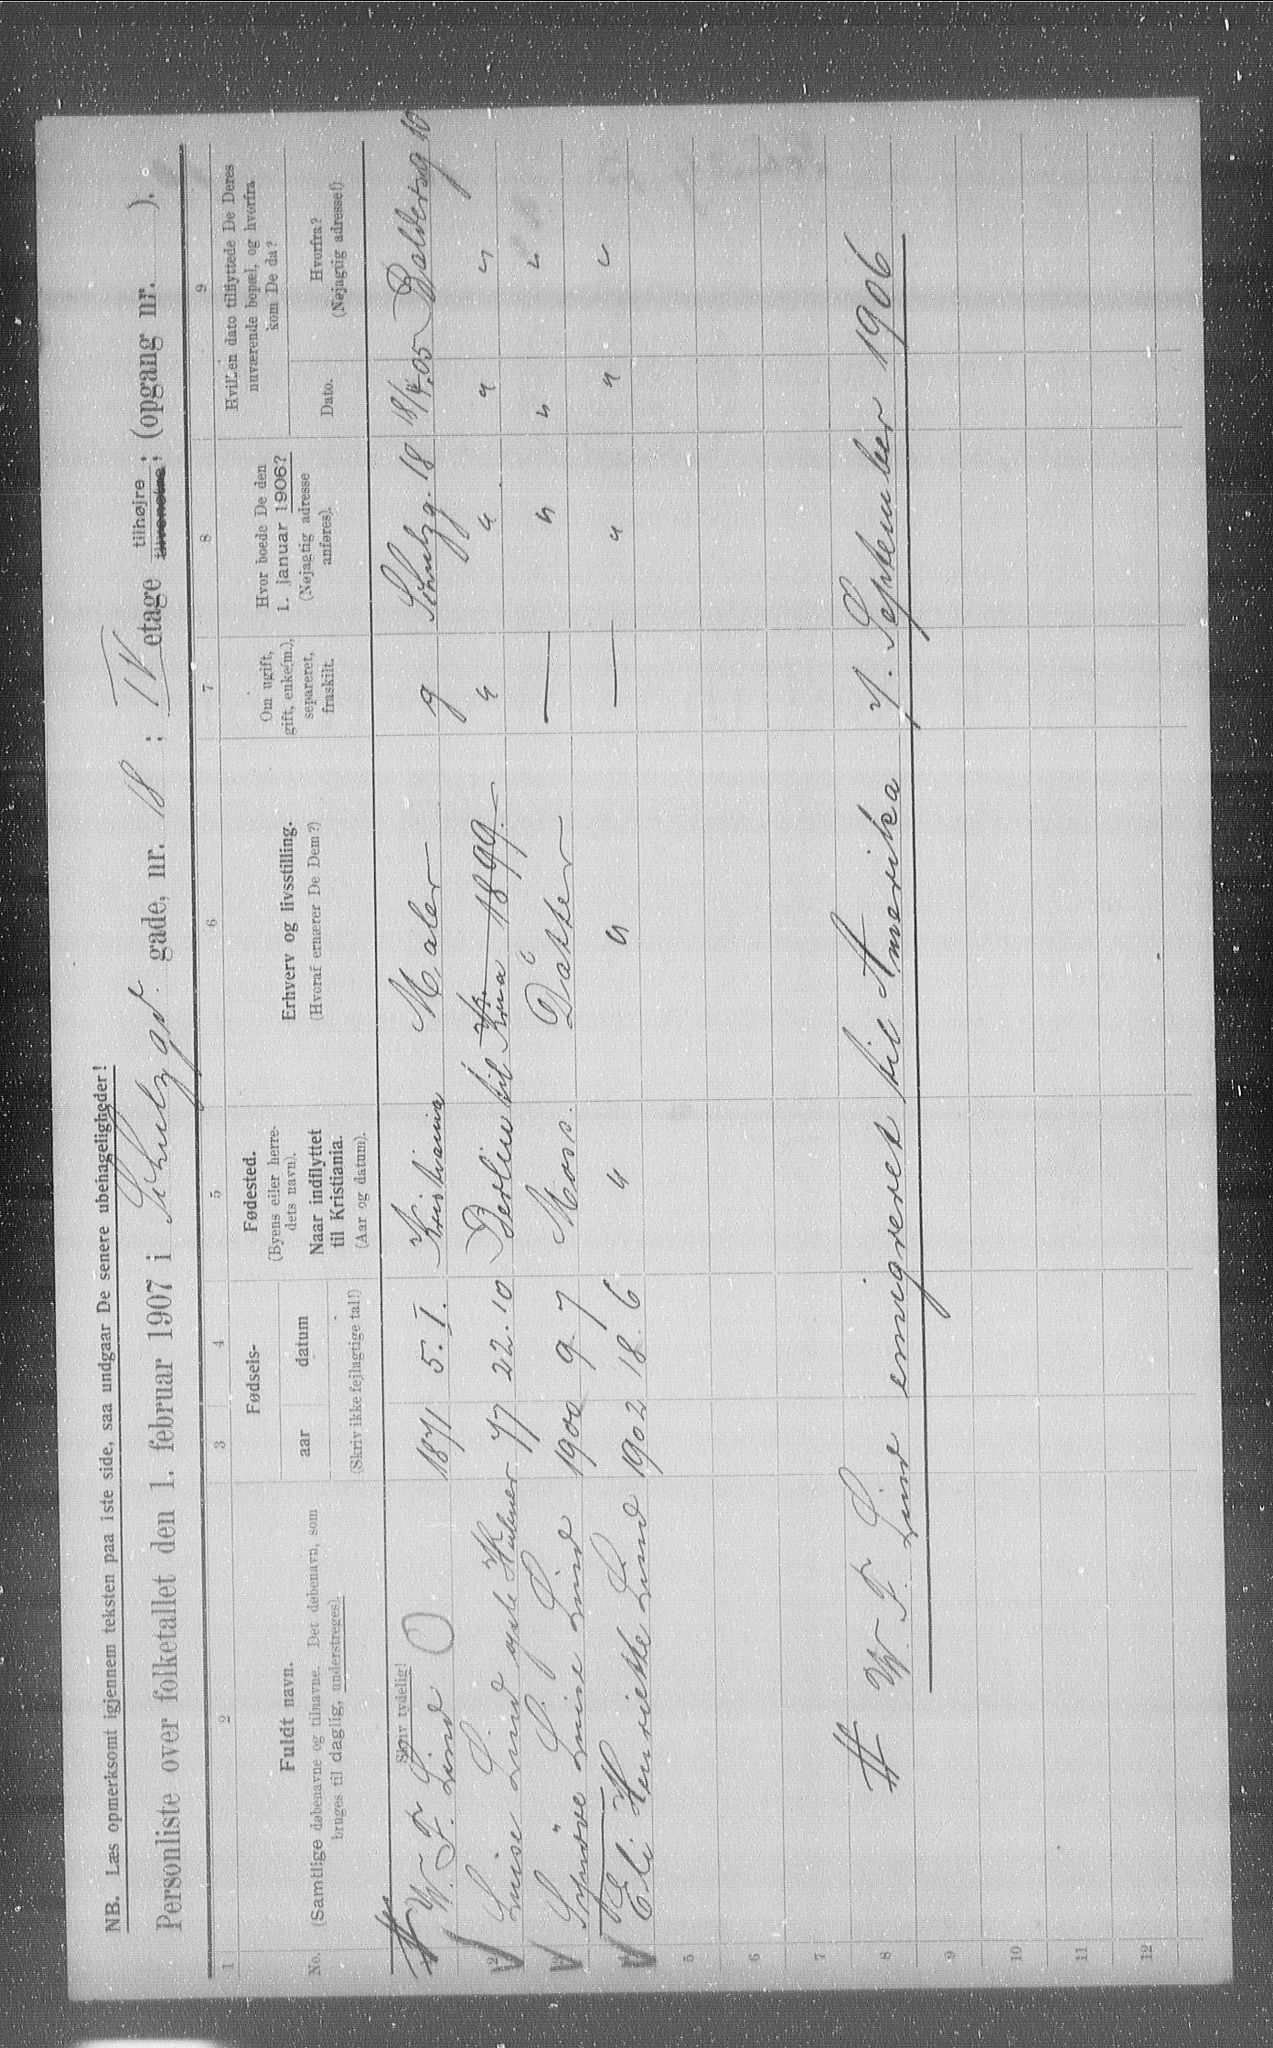 NB. Læs opmerksomt igjennem teksten paa 1ste side, saa undgaar De senere ubehageligheder!
Personliste over folketallet den 1. februar 1907 i Schulzgd. gade, nr. 18; IV etage tilhøjre tilvenstre; (opgang nr. ).
1 2 3 4 5 6 7 8 9
No.
Fuldt navn.
(Samtlige døbenavne og tilnavne. Det døbenavn, som
bruges til daglig, understreges).
Skriv tydelig!
Fødsels-
aar datum
(Skriv ikke fejlagtige tal!)
Fødested.
(Byens eller herre-
dets navn).
Naar indflyttet
til Kristiania.
(Aar og datum).
Erhverv og livsstilling.
(Hvoraf ernærer De Dem?)
Om ugift,
gift, enke(m.),
separeret,
fraskilt.
Hvor boede De den
1. januar 1906?
(Nøjagtig adresse
anføres).
Hvilken dato tilflyttede De Deres
nuværende bopæl, og hvorfra
kom De da?
Dato.
Hvorfra?
(Nøjagtig adresse!)
# W. F. Lind 1871 5. I. Kristiania Maler g Schulzg. 18 18/4.05 Baldersg 10
2 Luise Lind 77 22.10 Berlin til Kria 1899. " " " "
Synöve Luise Lind 1900 9. 7 Moss. Datter — " " "
Eli Henriette Lind 1902 18. 6 " " — " " "
5
6
7
8 # W. F. Lind emigreret til Amerika 7. September 1906
9
10
11
12